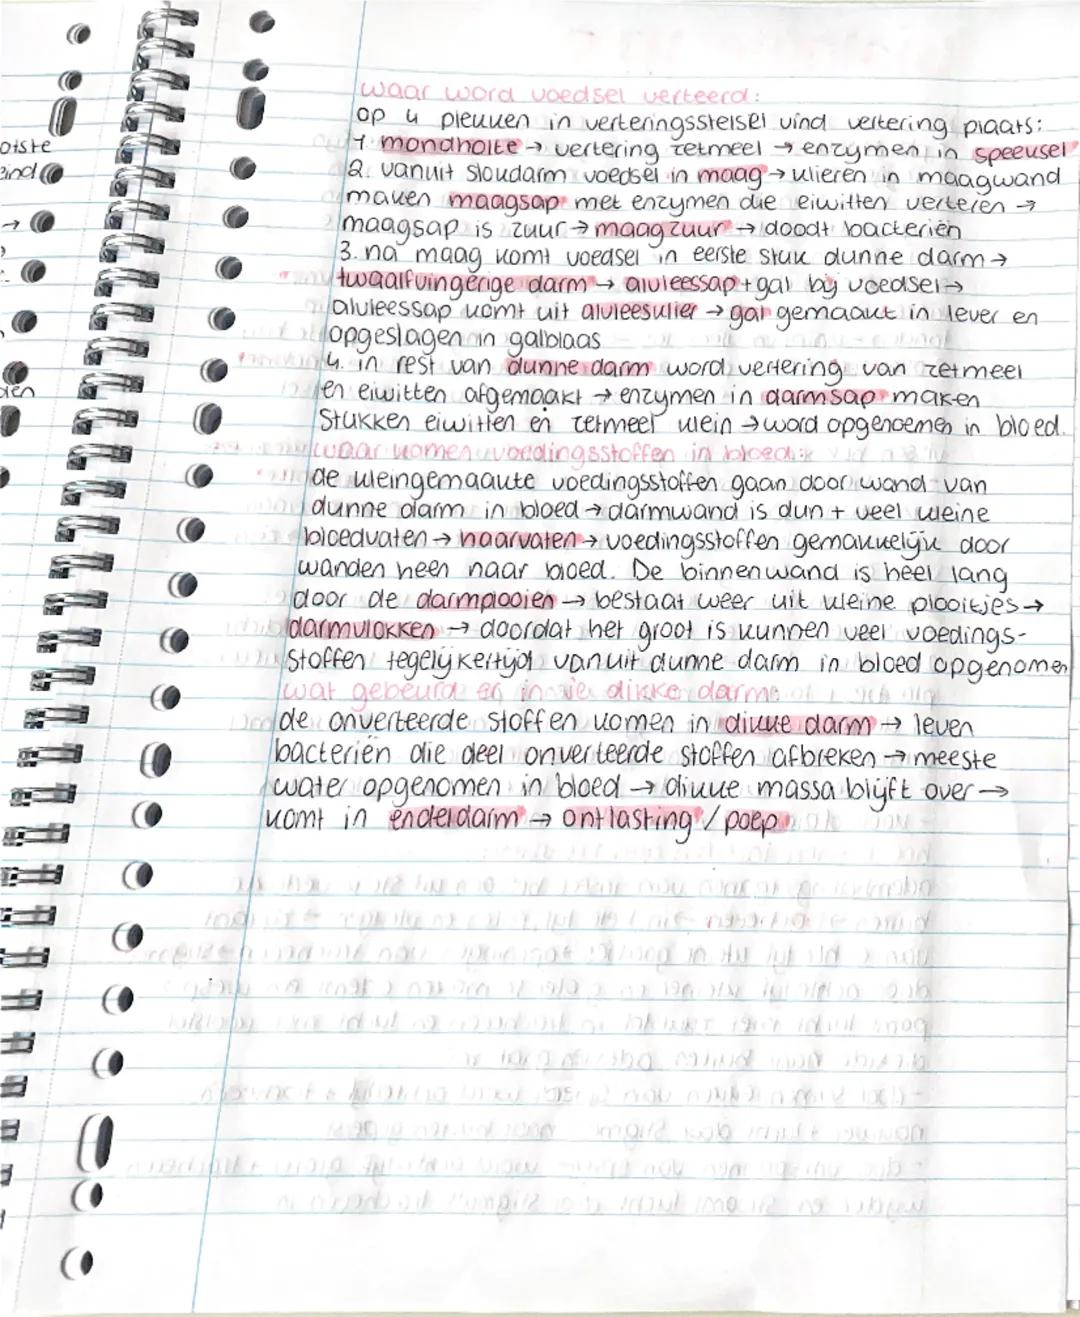 waar word voedsel verteerd:
op 4 plekken in verteringsstelsel vind vertering plaats:
1. mondholte → vertering zetmeel → enzymen in speeksel
2. vanuit slokdarm voedsel in maag → klieren in maagwand
maken maagsap met enzymen die eiwitten verteren →
maagsap is zuur → maagzuur → doodt bacteriën
3. na maag komt voedsel in eerste stuk dunne darm →
twaalfvingerige darm → alvleessap + gal bij voedsel →
alvleessap komt uit alvleesklier → gal gemaakt in lever en
opgeslagen in galblaas
4. in rest van dunne darm word vertering van zetmeel
en eiwitten afgemaakt → enzymen in darmsap maken
stukken eiwitten en zetmeel klein → word opgenomen in bloed.
waar komen voedingsstoffen in bloed:
de kleingemaakte voedingsstoffen gaan door wand van
dunne darm in bloed → darmwand is dun + veel kleine
bloedvaten → haarvaten → voedingsstoffen gemakkelijk door
wanden heen naar bloed. De binnenwand is heel lang
door de darmplooien → bestaat weer uit kleine plooitjes →
darmvlokken → doordat het groot is kunnen veel voedings-
stoffen tegelijkertijd vanuit dunne darm in bloed opgenomen
wat gebeurd er in je dikke darm:
de onverteerde stoffen komen in dikke darm → leven
bacteriën die deel onverteerde stoffen afbreken → meeste
water opgenomen in bloed → dikke massa blijft over →
komt in endeldarm → ontlasting / poep
otste
eind